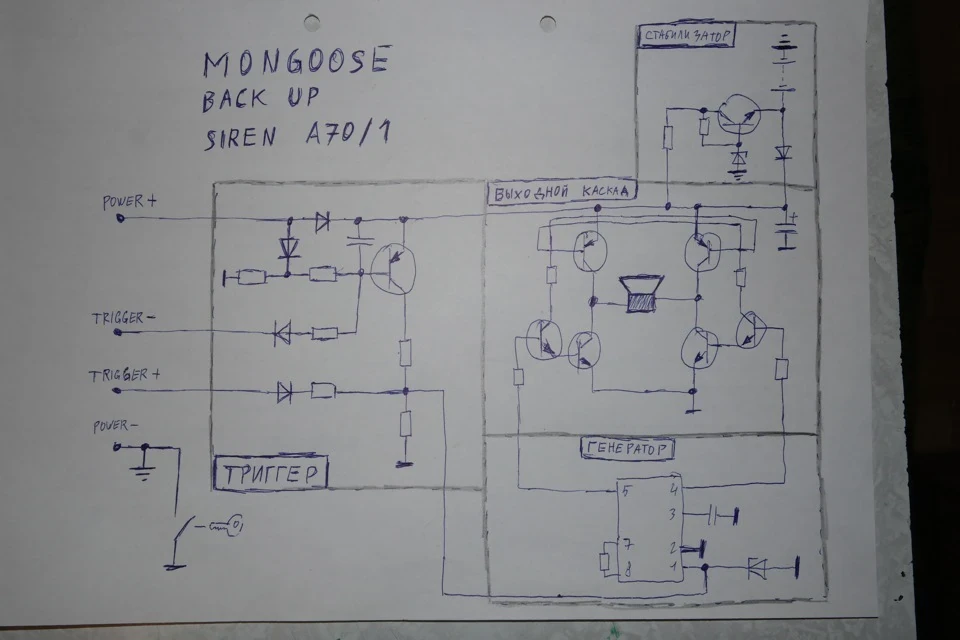 MONGOOSE
BACK UP
SIREN A70/1
СТАБИЛИЗАТОР
ВЫХОДНОЙ КАСКАД
POWER+
+
TRIGGER-
TRIGGER+
POWER-
ГЕНЕРАТОР
ТРИГГЕР
5 4
3
7 2
8 1